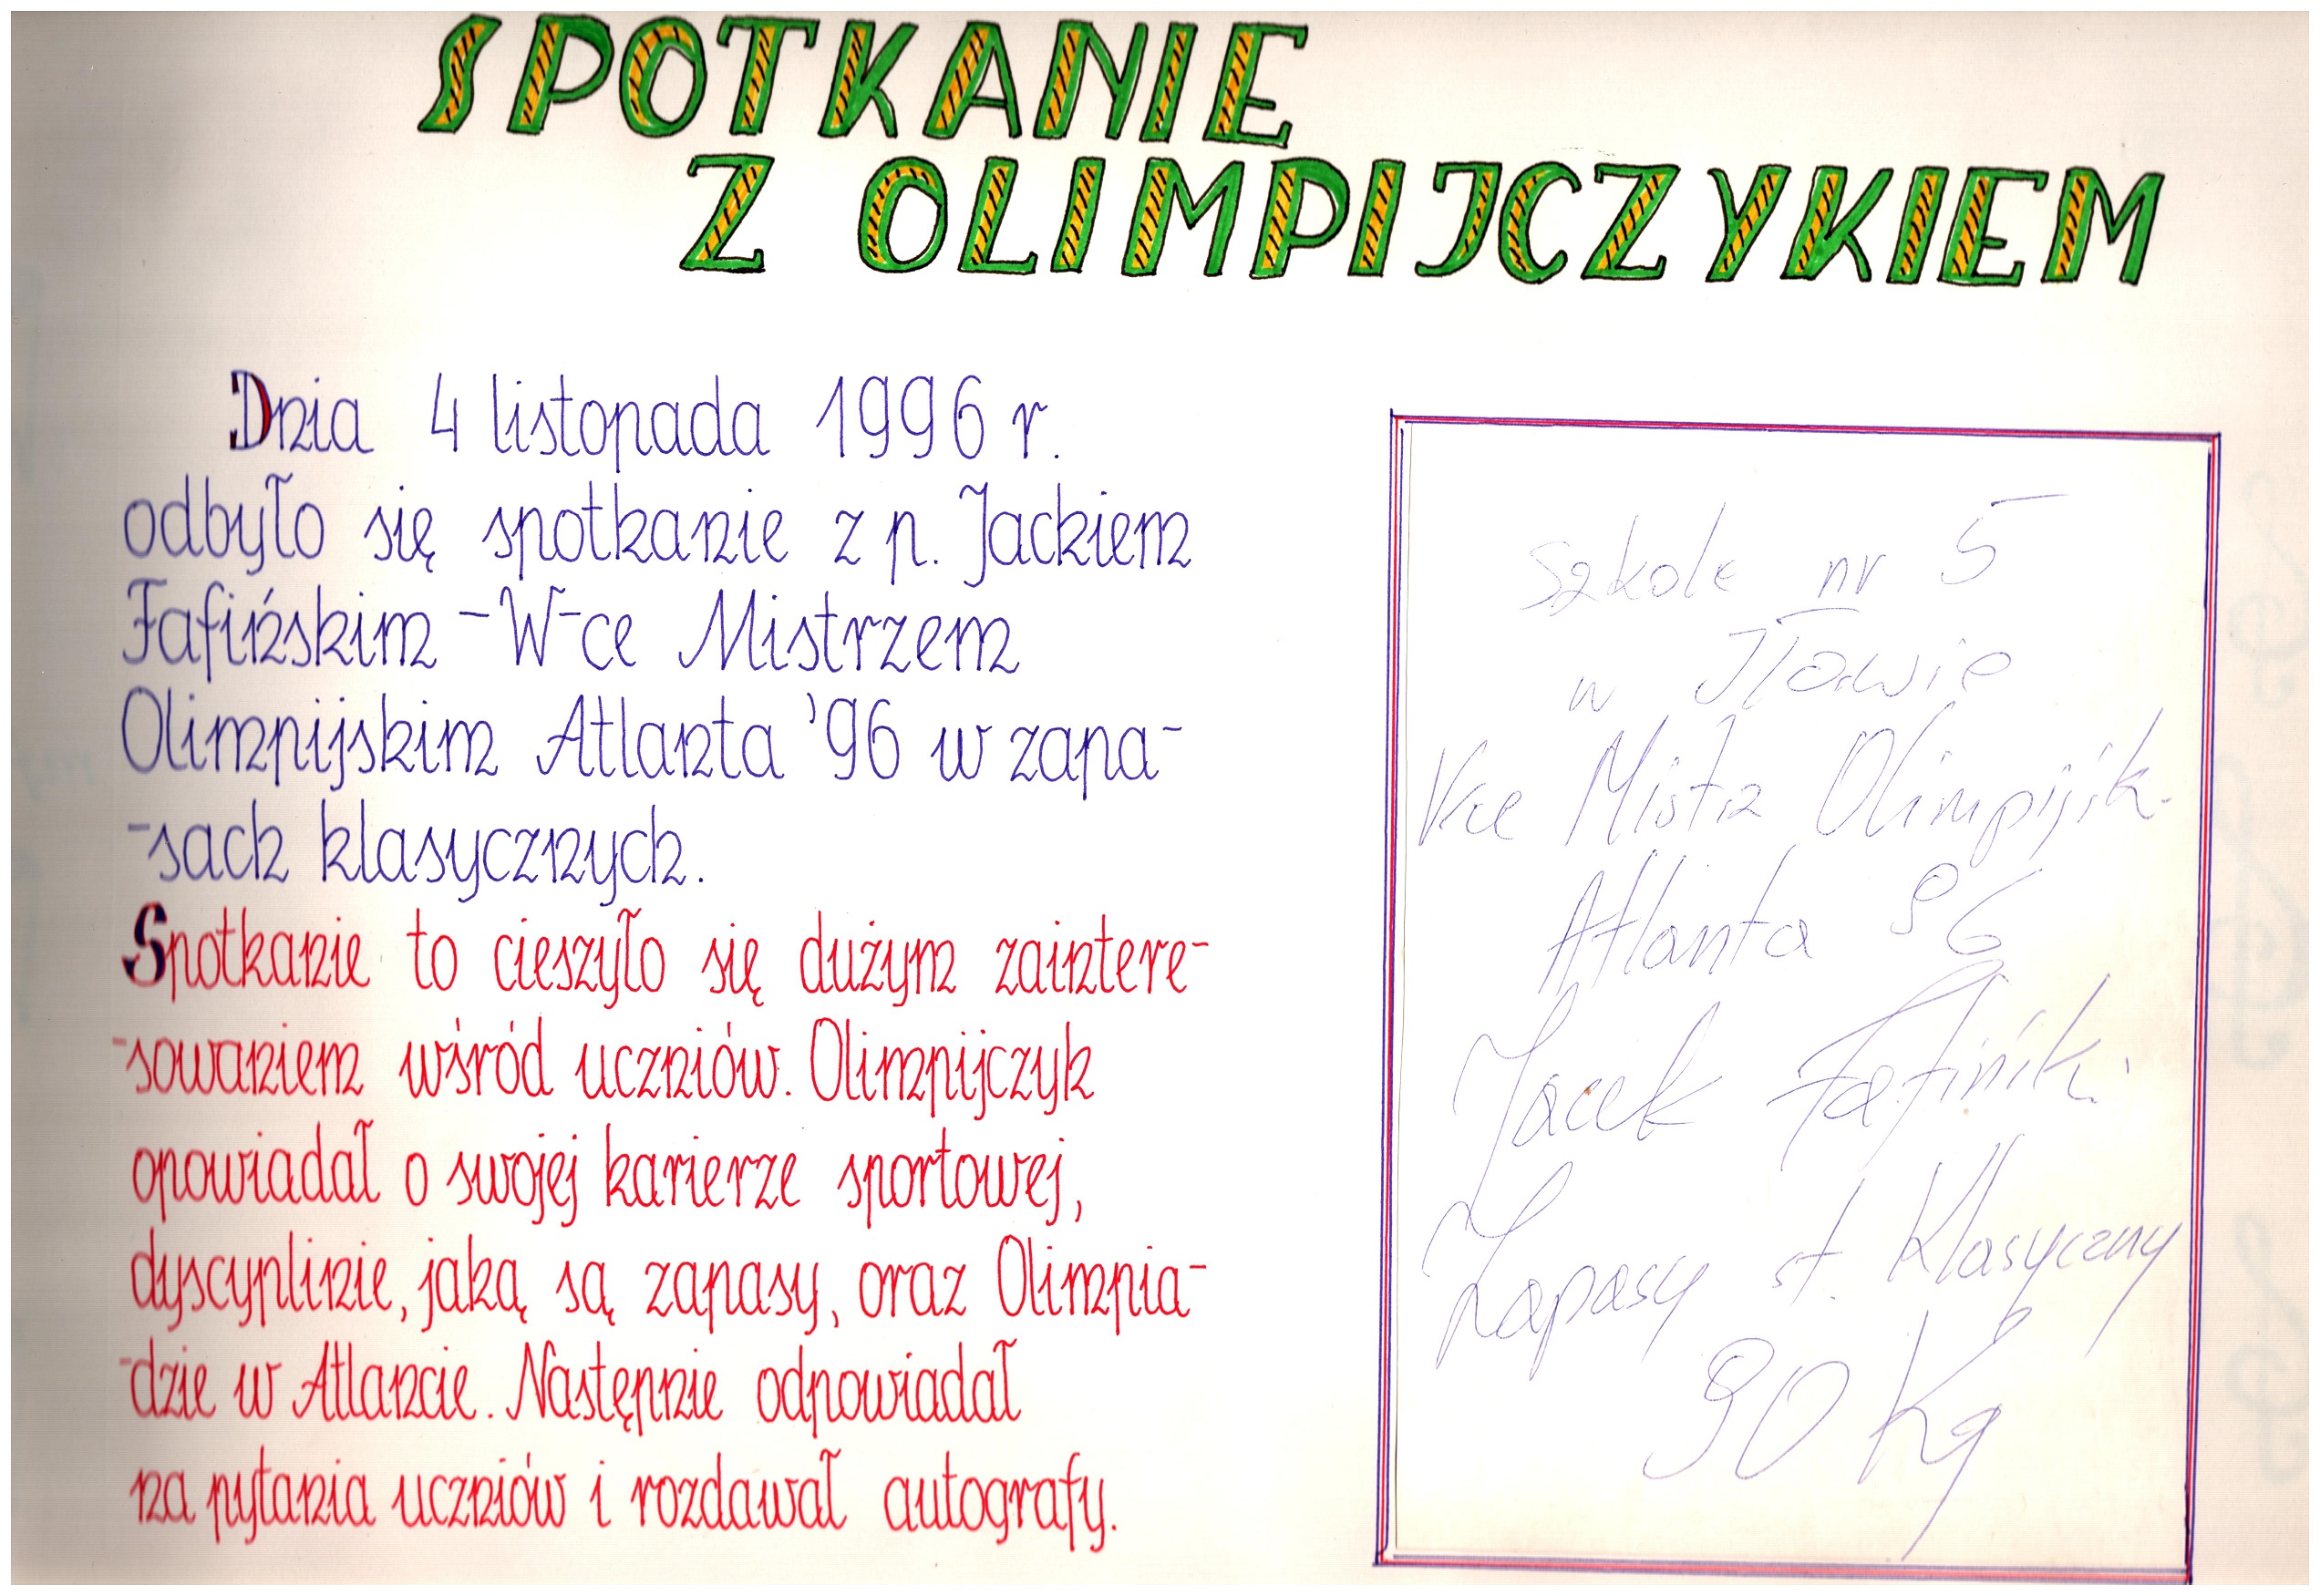 SPOTKANIE
Z OLIMPIJCZYKIEM
Dnia 4 listopada 1996 r.
odbyło się spotkanie z p. Jackiem
Fafińskim - W-ce Mistrzem
Olimpijskim Atlanta '96 w zapa-
-sach klasycznych.
Spotkanie to cieszyło się dużym zaintere-
-sowaniem wśród uczniów. Olimpijczyk
opowiadał o swojej karierze sportowej,
dyscyplinie, jaką są zapasy, oraz Olimpia-
-dzie w Atlancie. Następnie odpowiadał
na pytania uczniów i rozdawał autografy.
Szkole nr 5
w Iławie
Vice Mistrz Olimpijsk.
Atlanta 96
Jacek Fafiński
Zapasy st. Klasyczny
90 Kg